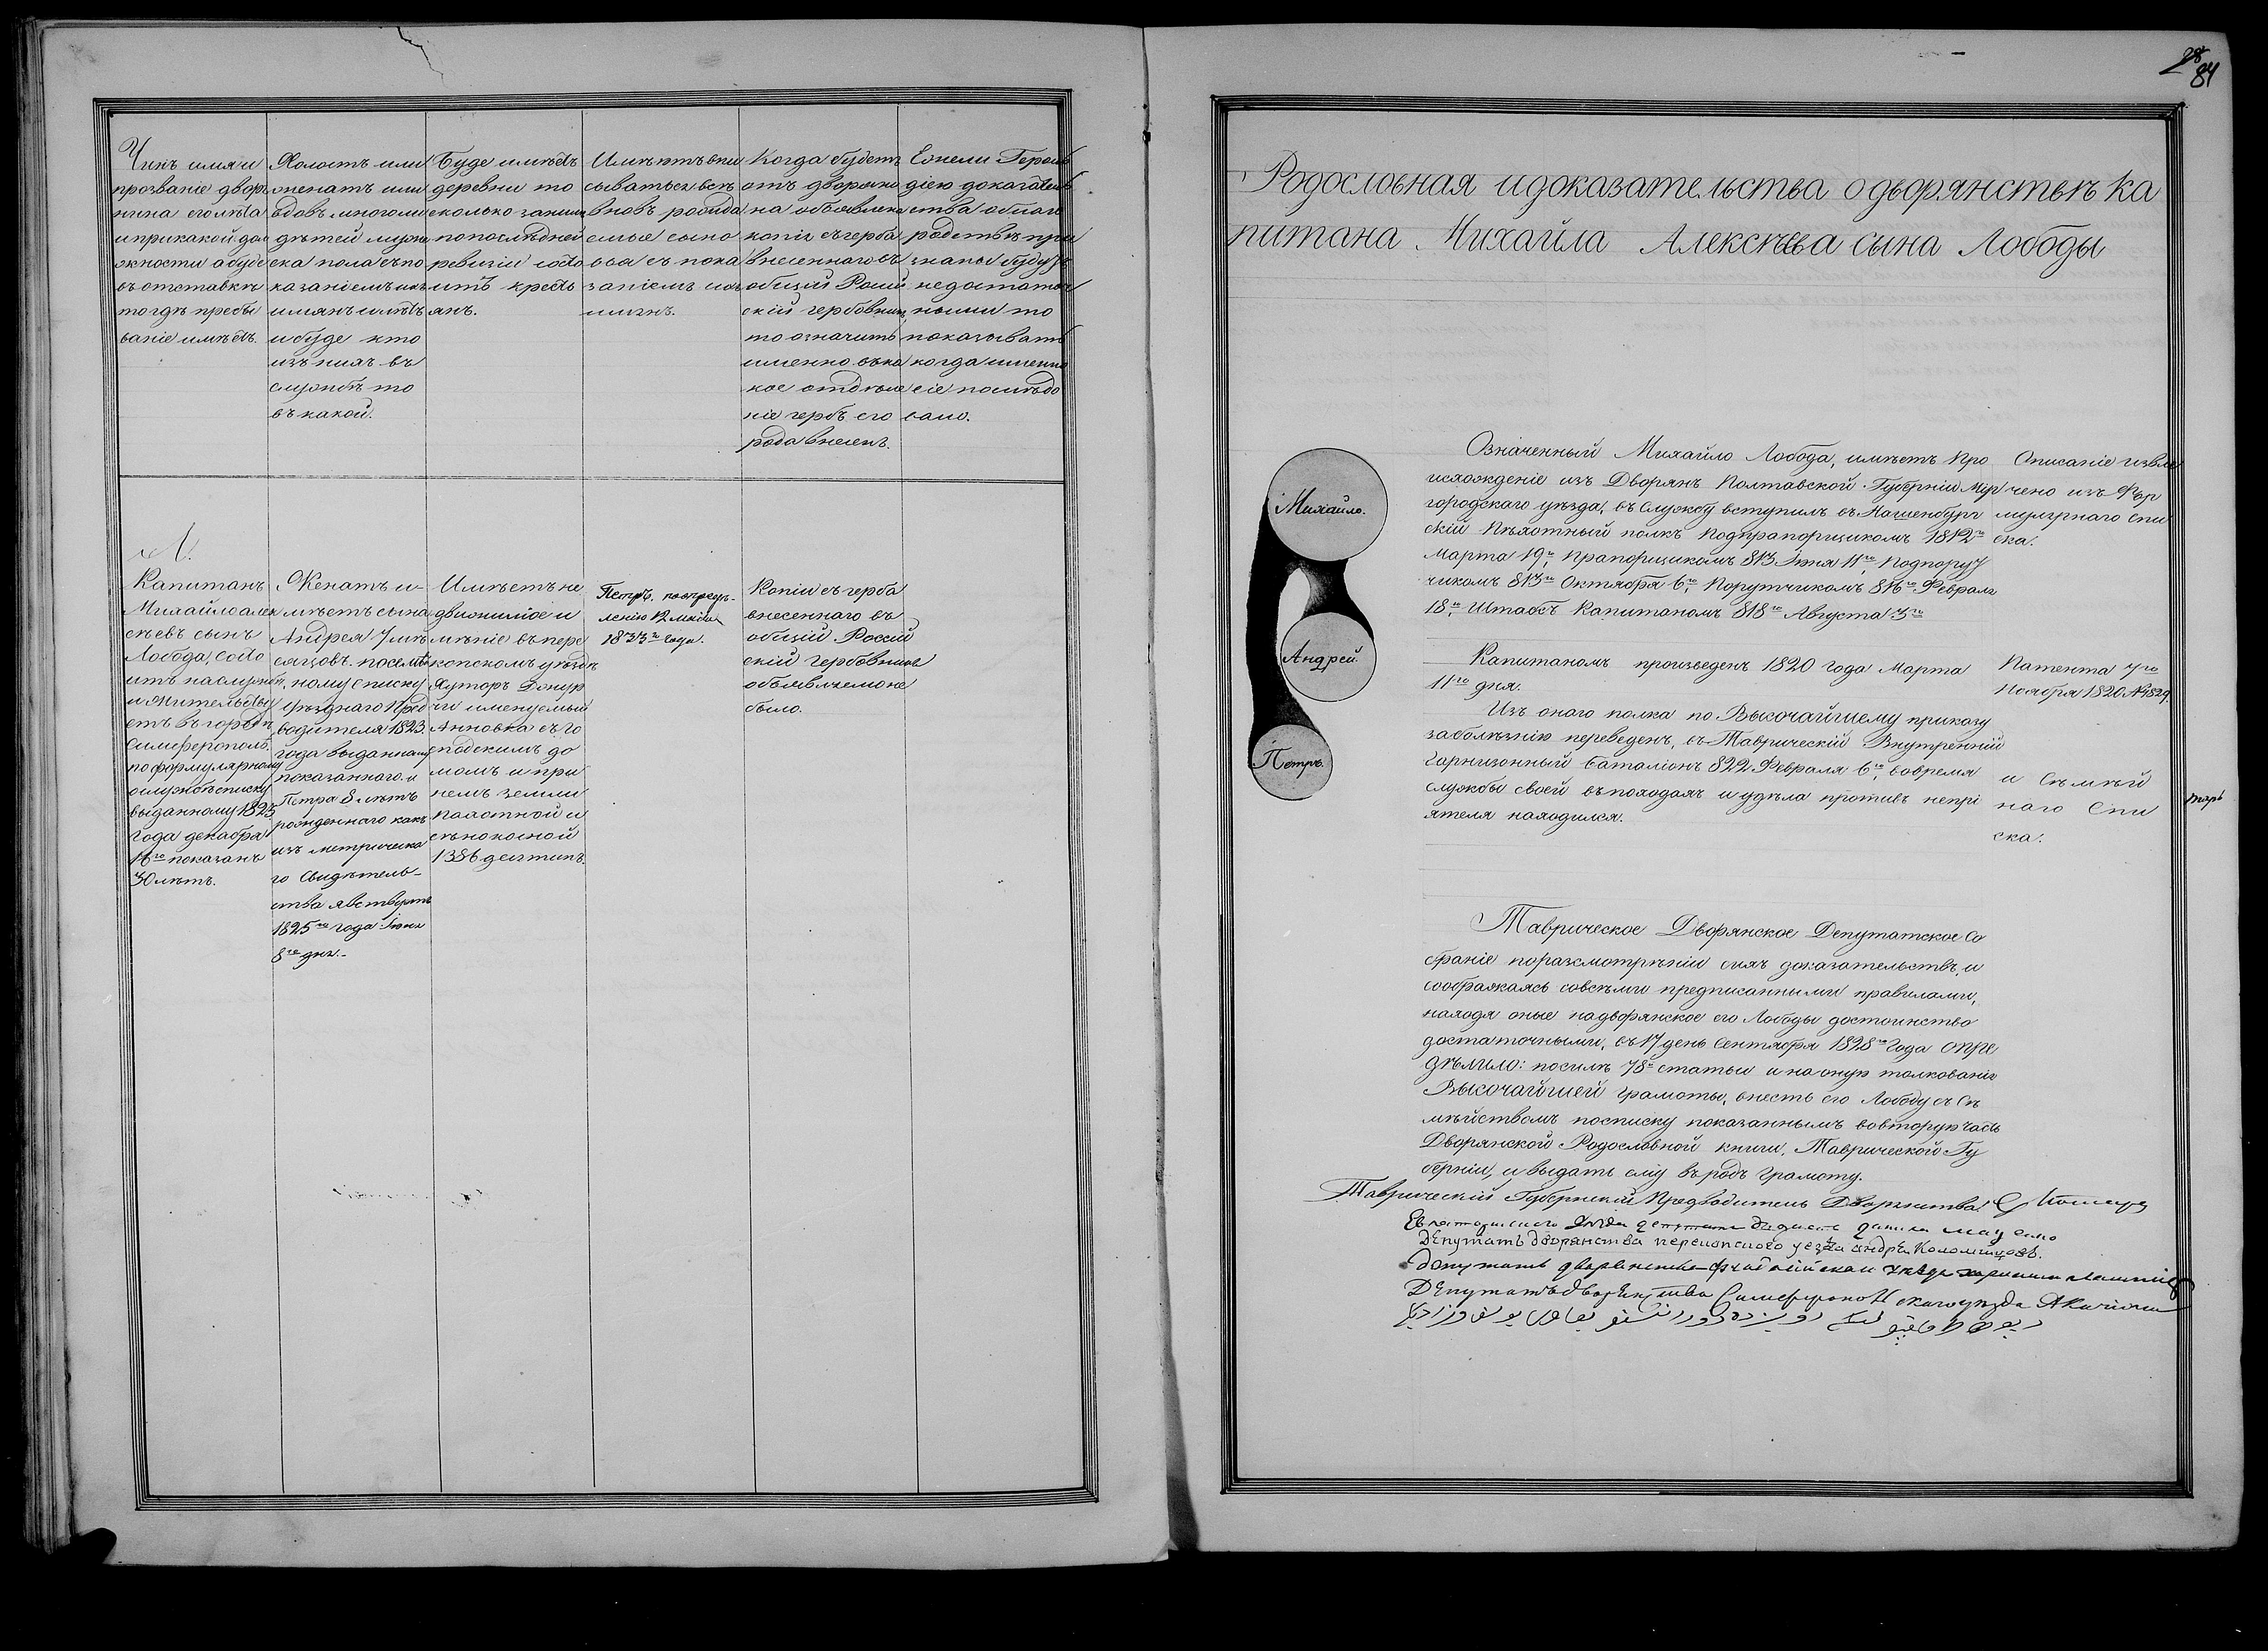 28
84
Чинъ имя и
прозваніе дворя
нина его лѣта
и при какой дол
жности а буде
въ отставкѣ
то гдѣ пребы
ваніе имѣетъ.
Холостъ или
женатъ или
вдовъ много ли
дѣтей мужес
ска пола съ по
казаніемъ ихъ
имянъ и лѣтъ
и буде кто
изъ нихъ въ
службѣ то
въ какой.
Буде имѣетъ
деревни то
сколько за ним
по послѣдней
ревизіи состо
итъ кресть
янъ.
Имѣютъ впи
сываться всѣ
вновь рожда
емые сыно
вья съ пока
заніемъ ихъ
имянъ.
Когда будетъ
отъ дворяни
на объявлена
копія съ герба
внесеннаго въ
общій Россій
скій гербовник
то означить
именно въ ка
кое отдѣле
ніе гербъ его
рода внесенъ.
Ежели Героль
діею доказатель
ства о благо
родствѣ при
знаны будутъ
недостаточ
ными то
показывать
когда именно
сіе послѣдо
вало.
Л.
Капитанъ
Михайло алек
сѣевъ сынъ
Лобода, состо
итъ на службѣ
и жительству
етъ въ городѣ
Симферополѣ.
по формулярному
о службѣ списку
выданному 1823
года декабря
16го показанъ
30 лѣтъ.
Женатъ и
мѣетъ сына
Андрея 7 мѣ
сяцовъ. по семей
ному списку
Уѣзднаго Пред
водителя 1823.
года выданному
показаннаго. и
Петра 8 лѣтъ
рожденнаго какъ
изъ метрическа
го Свидѣтель-
ства явствуетъ
1825го года Іюня
8го дня.-
Имѣетъ не
движимое и
мѣніе въ пере
копскомъ уѣздѣ
Хуторъ Донуз
ги именуемый
Анновка съ го
сподскимъ до
момъ и при
немъ земли
пахотной и
сѣнокосной
1386 десятинъ.
Петръ. по опредѣ-
ленію 12 майя
1833го года.
Копіи съ герба
внесеннаго въ
общій Россій
скій гербовникъ
объявляемо не
было.
Родословная и доказательства о дворянствѣ ка
питана Михайла Алексѣева сына Лободы
Михайло.
Андрей.
Петръ.
Означенный Михайло Лобода, имѣетъ про
исхожденіе изъ Дворянъ Полтавской Губерніи Мир
городскаго уѣзда, въ Службу вступилъ въ Нашенбург
скій Пѣхотный полкъ Подпрапорщикомъ 1812го
Марта 19го, Прапорщикомъ 813 Іюня 11го, Подпоруч
чикомъ 813го Октября 6го, Порутчикомъ 816го Февраля
18го, Штабсъ Капитаномъ 818го Августа 3го
Описаніе извле
чено изъ Фор
мулярнаго спи
ска.
Капитаномъ произведенъ 1820 года Марта
11го дня.
Патента 7го
Ноября 1820. № 1829.
Изъ онаго полка по Высочайшему приказу
за болѣзнію переведенъ, въ Таврическій Внутренній
Гарнизонный Баталіонъ 822 Февраля 6го, во время
службы своей въ походахъ и у дѣла противъ непрі
ятеля находился.
и Сѣмѣй
наго Спи
ска.
Таврическое Дворянское Депутатское Со
браніе по разсмотрѣніи сихъ доказательствъ, и
соображаясь со всѣми предписанными правилами,
находя оные на дворянское его Лободы достоинство
достаточными, въ 17 день Сентября 1828го Года опре
дѣлило: по силѣ 78й статьи и на оную толкованія
Высочайшей грамоты, внесть его Лободу съ Сѣ
мѣйствомъ по списку показаннымъ во вторую часть
Дворянской Родословной книги, Таврической Гу
берніи, и выдать ему въ родъ грамоту.
Таврическій Губернскій Предводитель Дворянства
Депутатъ дворянства перекопскаго уезда андръ Коломійцовъ.
Депутатъ дворянства
Депутатъ дворЕнства Симферопольскаго уезда